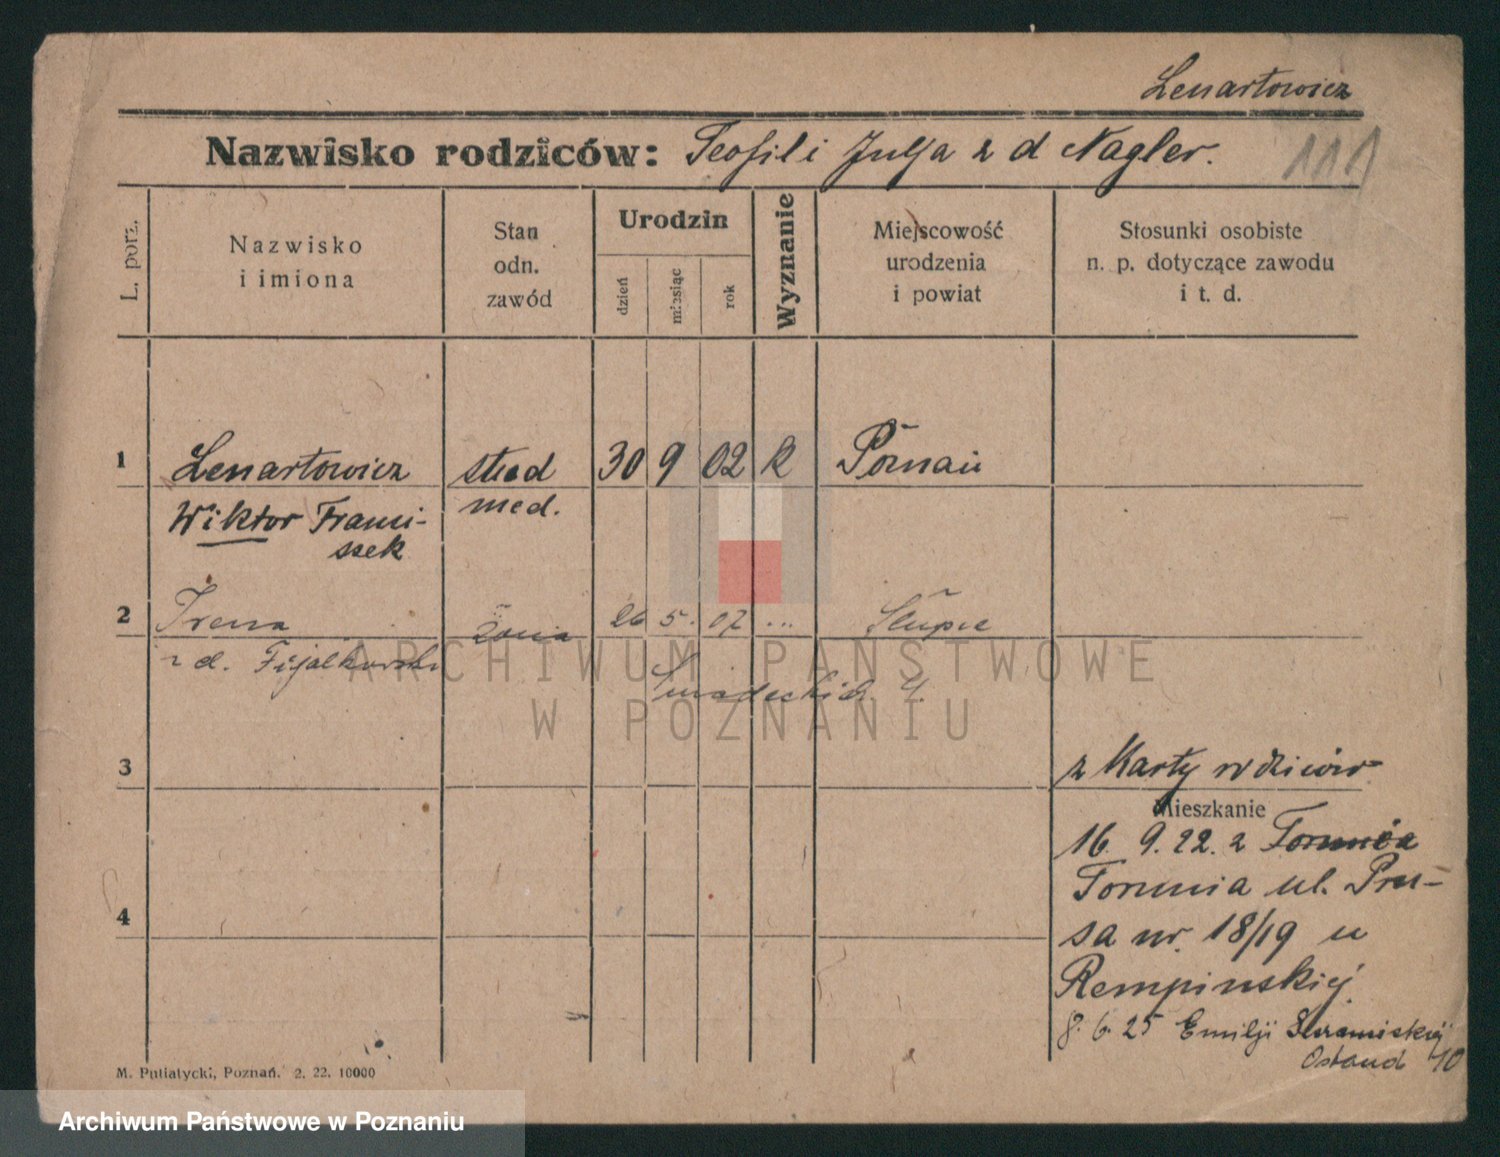 Lenartowicz
Nazwisko rodziców: Teofil i Julja z d Nagler.
111
L. porz.
Nazwisko
i imiona
Stan
odn.
zawód
Urodzin
dzień
miesiąc
rok
Wyznanie
Miejscowość
urodzenia
i powiat
Stosunki osobiste
n. p. dotyczące zawodu
i t. d.
1 Lenartowicz stud 30 9 02 k Poznań
Wiktor Franci- med.
szek
2 Irena żona 26 5. 07 ... Słupie
z d. Fijałkowski
ARCHIWUM PAŃSTWOWE
Śniadeckich 4.
W POZNANIU
3 z Karty rodziców
Mieszkanie
16. 9. 22. z Torunia
Torunia ul. Pru-
4
sa nr. 18/19 u
Rempinskiej.
8. 6. 25 Emilji
10
M. Putiatycki, Poznań. 2. 22. 10000
Archiwum Państwowe w Poznaniu